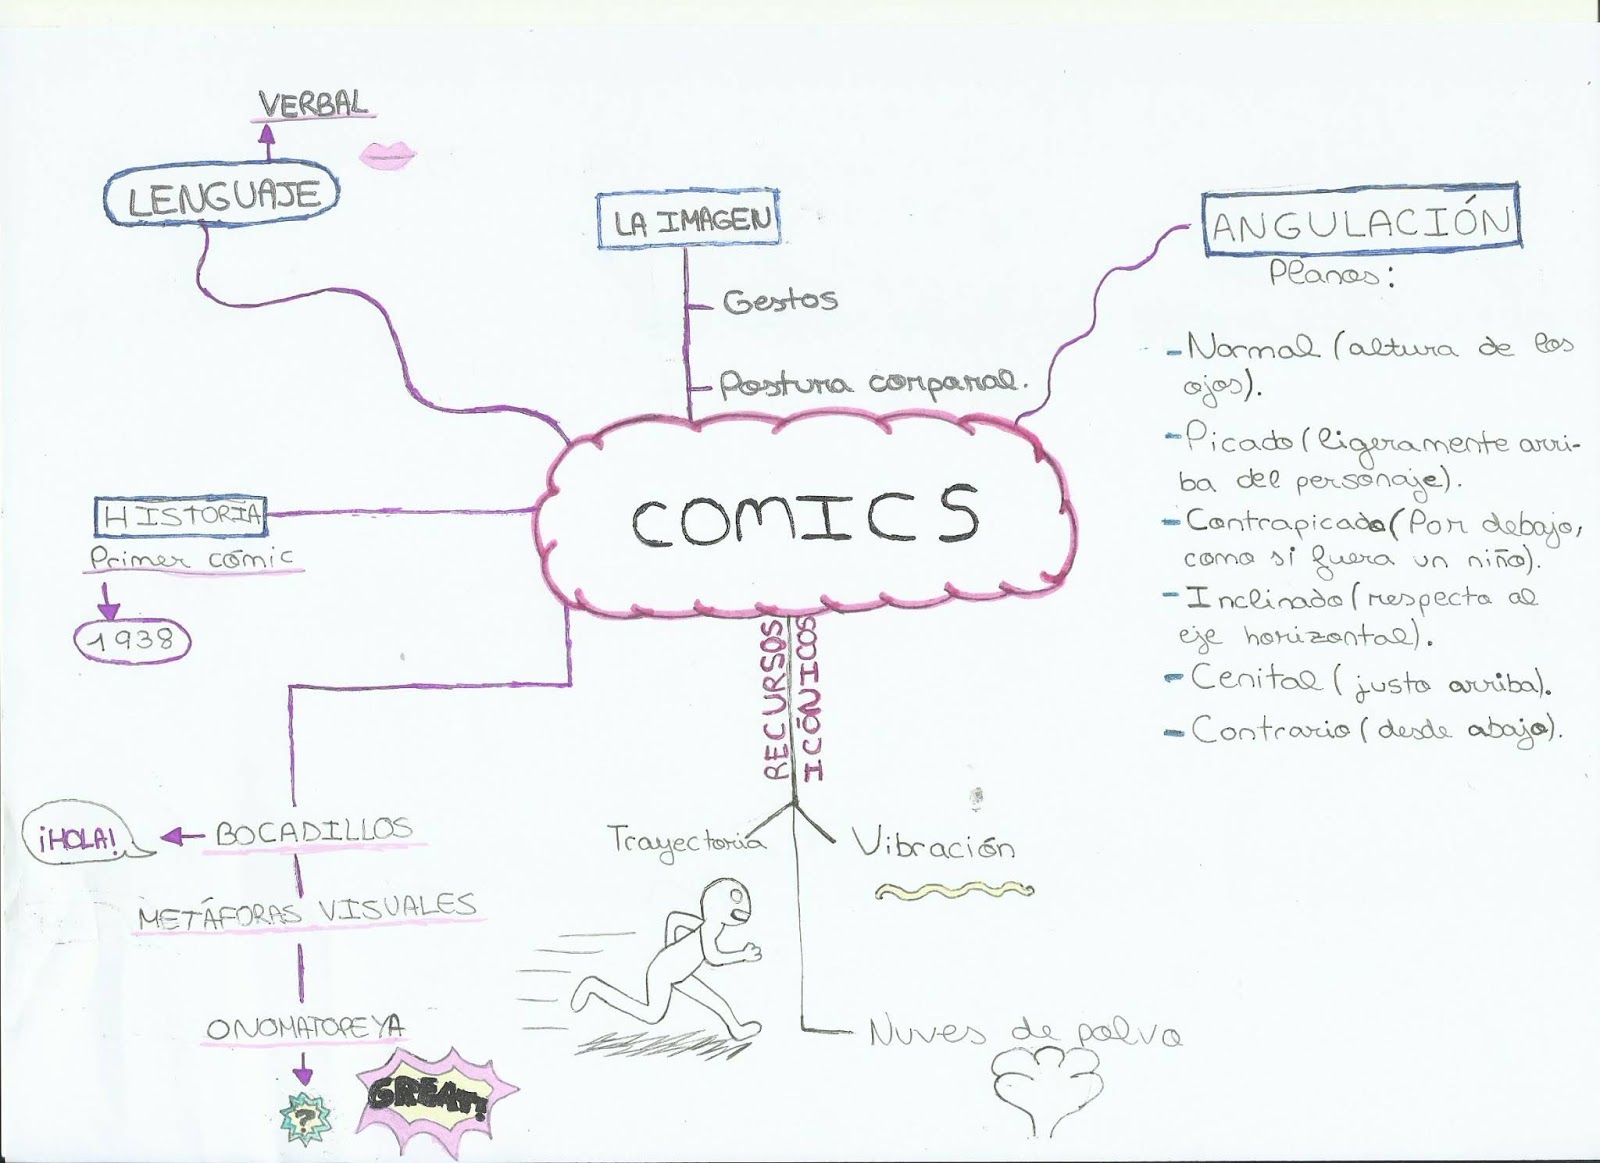 VERBAL
LENGUAJE
LA IMAGEN
Gestos
Postura corporal.
ANGULACIÓN
Planos:
- Normal (altura de los
ojos).
- Picado (ligeramente arri-
ba del personaje).
- Contrapicado (Por debajo,
como si fuera un niño).
- Inclinado (respecto al
eje horizontal).
- Cenital (justo arriba).
- Contrario (desde abajo).
COMICS
HISTORIA
Primer cómic
1938
RECURSOS
ICÓNICOS
¡HOLA!
BOCADILLOS
METÁFORAS VISUALES
ONOMATOPEYA
?
GREAT!
Trayectoria
Vibración
Nuves de polvo